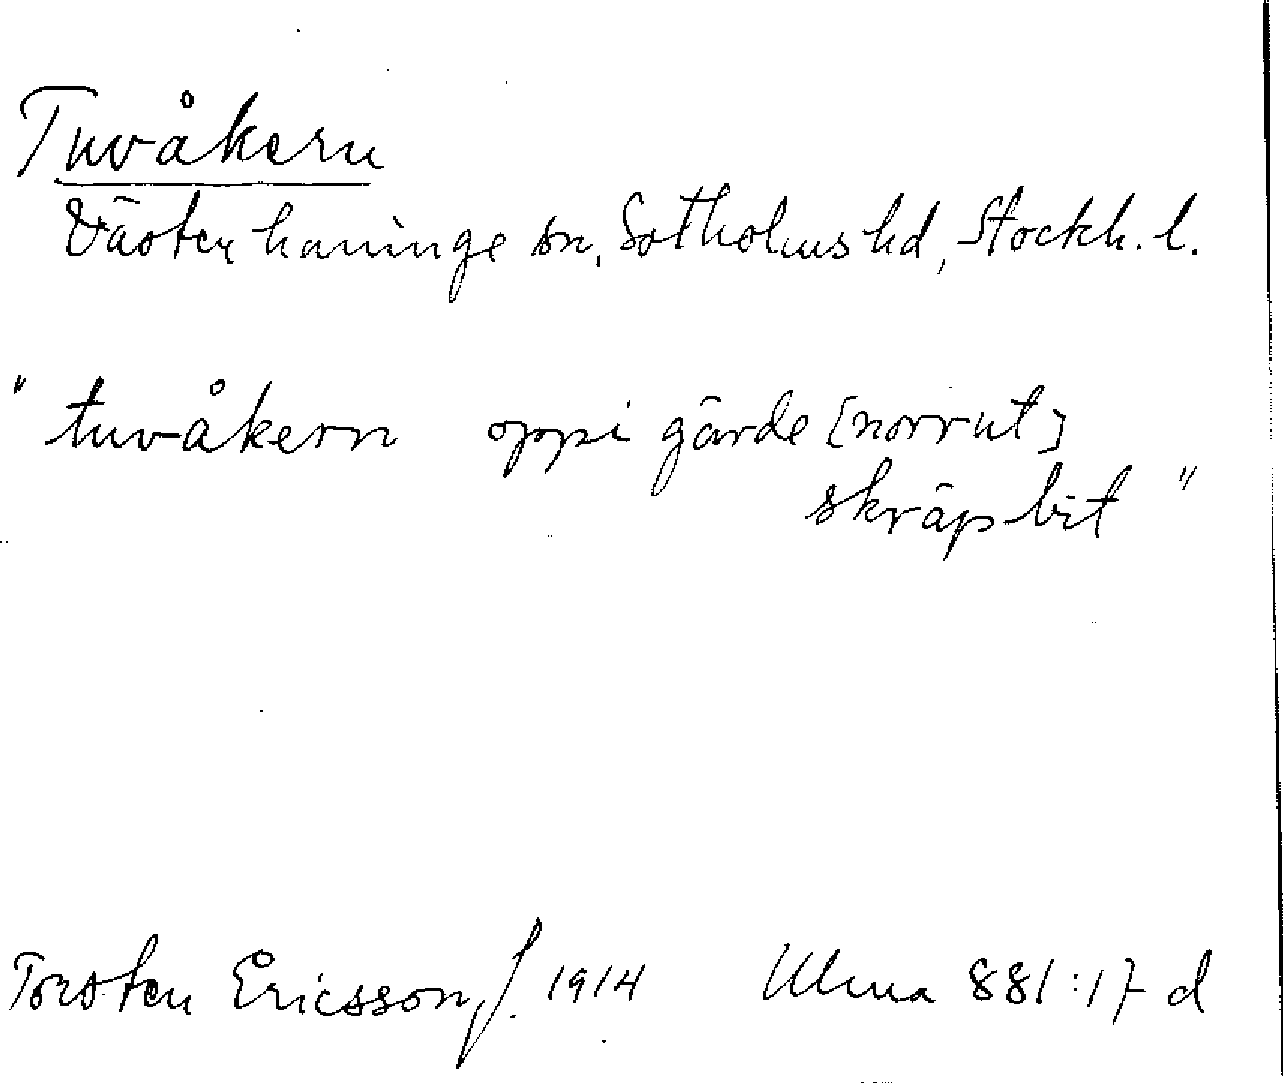 Tuvåkern
Västerhaninge sn, Sotholms hd, Stockh. l.
" tuvåkern oppi gärde [norrut]
skräpbit "
Torsten Ericsson, f. 1914 Ulma 881:17 d